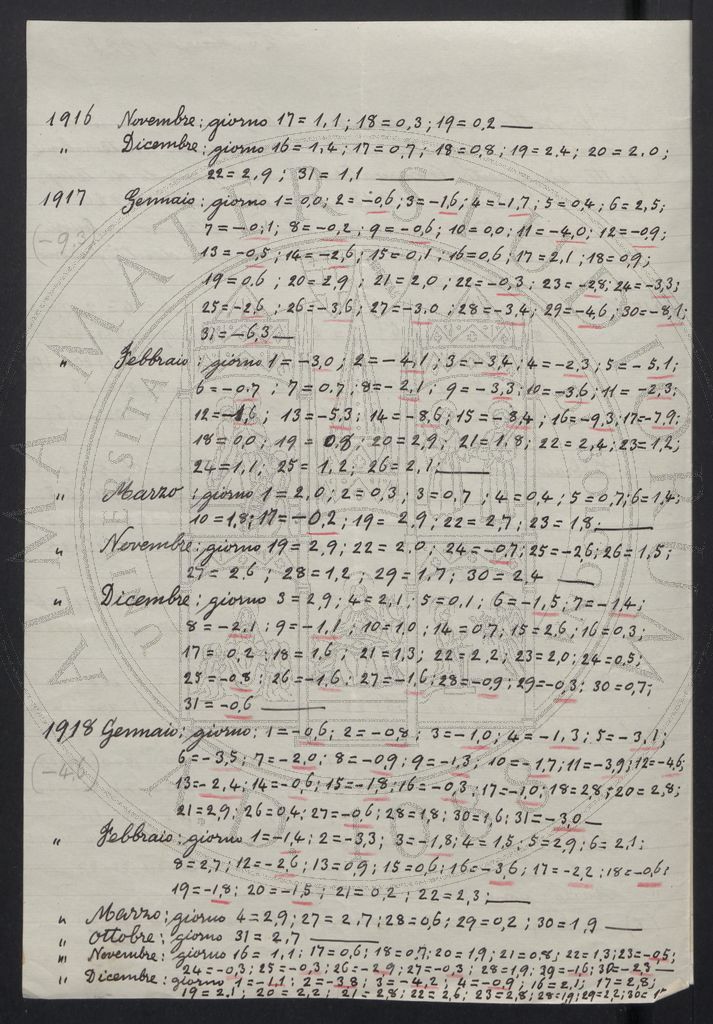 1916 Novembre: giorno 17=1,1; 18=0,3; 19=0,2 —
" Dicembre: giorno 16=1,4; 17=0,7; 18=0,8; 19=2,4; 20=2,0;
22=2,9; 31=1,1 —
1917 Gennaio: giorno 1=0,0; 2=-0,6; 3=-1,6; 4=-1,7; 5=0,4; 6=2,5;
(-9,3) 7=-0,1; 8=-0,2; 9=-0,6; 10=0,0; 11=-4,0; 12=-0,9;
13=-0,5; 14=-2,6; 15=0,1; 16=0,6; 17=2,1; 18=0,9;
19=0,6; 20=2,9; 21=2,0; 22=-0,3; 23=-2,8; 24=-3,3;
25=-2,6; 26=-3,6; 27=-3,0; 28=-3,4; 29=-4,6; 30=-8,1;
31=-6,3 —
" Febbraio: giorno 1=-3,0; 2=-4,1; 3=-3,4; 4=-2,3; 5=-5,1;
6=-0,7; 7=0,7; 8=-2,1; 9=-3,3; 10=-3,6; 11=-2,3;
12=-1,6; 13=-5,3; 14=-8,6; 15=-8,4; 16=-9,3; 17=-7,9;
18=0,0; 19=0,8; 20=2,9; 21=1,8; 22=2,4; 23=1,2;
24=1,1; 25=1,2; 26=2,1; —
" Marzo: giorno 1=2,0; 2=0,3; 3=0,7; 4=0,4; 5=0,7; 6=1,4;
10=1,8; 17=-0,2; 19=2,9; 22=2,7; 23=1,8; —
" Novembre: giorno 19=2,9; 22=2,0; 24=-0,7; 25=-2,6; 26=1,5;
27=2,6; 28=1,2; 29=1,7; 30=2,4 —
" Dicembre: giorno 3=2,9; 4=2,1; 5=0,1; 6=-1,5; 7=-1,4;
8=-2,1; 9=-1,1; 10=1,0; 14=0,7; 15=2,6; 16=0,3;
17=0,2; 18=1,6; 21=1,3; 22=2,2; 23=2,0; 24=0,5;
25=-0,8; 26=-1,6; 27=-1,6; 28=-0,9; 29=-0,3; 30=0,7;
31=-0,6 —
1918 Gennaio: giorno: 1=-0,6; 2=-0,8; 3=-1,0; 4=-1,3; 5=-3,1;
(-4,6) 6=-3,5; 7=-2,0; 8=-0,9; 9=-1,3; 10=-1,7; 11=-3,9; 12=-4,6;
13=-2,4; 14=-0,6; 15=-1,8; 16=-0,3; 17=-1,0; 18=2,8; 20=2,8;
21=2,9; 26=0,4; 27=-0,6; 28=1,8; 30=1,6; 31=-3,0 —
" Febbraio: giorno 1=-1,4; 2=-3,3; 3=-1,8; 4=1,5; 5=2,9; 6=2,1;
8=2,7; 12=-2,6; 13=0,9; 15=0,6; 16=-3,6; 17=-2,2; 18=-0,6;
19=-1,8; 20=-1,5; 21=0,2; 22=2,3; —
" Marzo: giorno 4=2,9; 27=2,7; 28=0,6; 29=0,2; 30=1,9 —
" Ottobre: giorno 31=2,7 —
" Novembre: giorno 16=1,1; 17=0,6; 18=0,7; 20=1,9; 21=0,8; 22=1,3; 23=-0,5;
24=-0,3; 25=-0,3; 26=-2,9; 27=-0,3; 28=1,9; 29=-1,6; 30=-2,3 —
" Dicembre: giorno 1=-1,1; 2=-3,8; 3=-4,2; 4=-0,9; 16=2,1; 17=2,8;
19=2,1; 20=2,2; 21=2,8; 22=2,6; 23=2,8; 28=1,9; 29=2,2;
ALMA MATER STUDIORUM